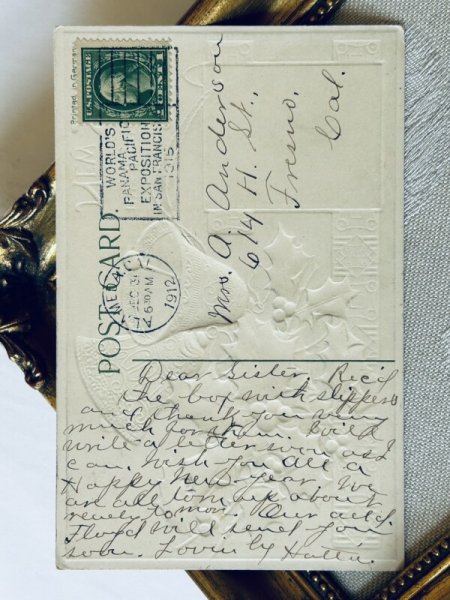 Printed in Germany
U.S. POSTAGE
1 CENT 1
WORLD'S
PANAMA
PACIFIC
EXPOSITION
IN SAN FRANCISCO
1915
DEC 31
6 30 AM
1912
POST CARD
Mrs. A. Anderson
614 H. St.,
Fresno,
Cal.
Dear Sister Recd
the box with slippers
and thank you very
much for them. Will
write a letter soon as I
can. Wish you all a
Happy New Year. We
are all torn up about
to move. Our add.
Floyd will send you
soon. Lovingly Hattie.